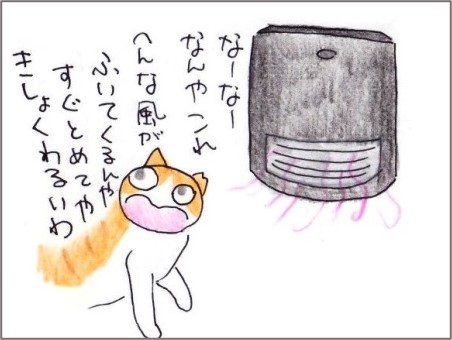 なーなー
なんやこれ
へんな風が
ふいてくるんや
すぐとめてや
きしょくわるいわ